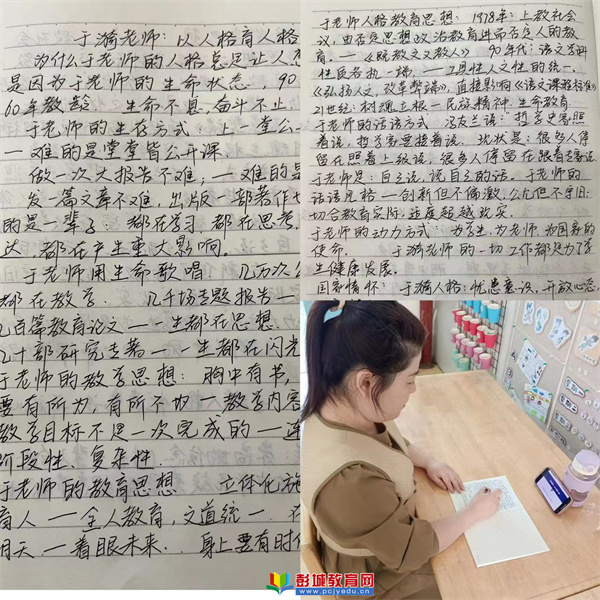 于漪老师：以人格育人格
为什么于老师的人格总是让人
是因为于老师的生命状态，90
60年教龄 生命不息，奋斗不止
于老师的生存方式：上一堂公
一难的是堂堂皆公开课．
做一次大报告不难，一难的是
发一篇文章不难，出版一部著作
的是一辈子：都在学习，都在思考，
达，都在产生重大影响。
于老师用生命歌唱 几万次公
都在教学． 几千场专题报告一
几百篇教育论文一一生都在思想．
几十部研究专著一一生都在闪光
于老师的教学思想：胸中有书，
要有所为，有所不为一教学内容
教学目标不是一次完成的一连
阶段性、复杂性．
于老师的教育思想 立体化施
育人一全人教育，文道统一．在
明天一着眼未来． 身上要有时代
于老师人格教育思想：1978年：上教社会
议，由否定思想政治教育进而否定人的教
育．一《既教文又教人》 90年代：语文学科
性质各执一端．一工具性人文性的统一．
《弘扬人文，改革弊端》，直接影响《语文课程标准》
21世纪：树魂立根一民族精神．生命教育
于老师的话语方式 冯友兰说："哲学史是照
着说，哲学家是接着说．现状是：很多人停
留在照着上级说，很多人停留在跟着专家说
于老师是：自己说，说自己的话。于老师的
话语风格一创新但不偏激，公允但不守旧．
切合教育实际，适度超越现实．
于老师的动力方式：为学生，为老师，为国家的
使命． 于漪老师的一切工作都是为了学
生健康发展。
国家情怀：于漪人格：忧患意识，开放心态，
彭城教育网
www.pcjyedu.cn